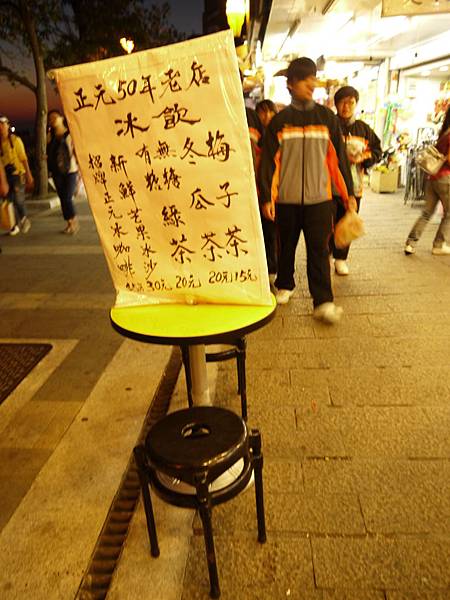 正元50年老店
冰飲
招牌正元冰咖啡
新鮮芒果冰沙 30元
有無糖綠茶 20元
冬瓜茶 20元
梅子茶 15元